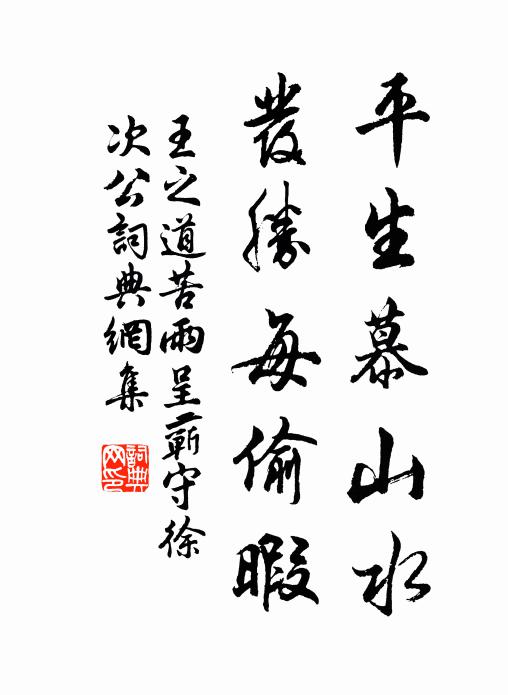 平生慕山水
發勝每偷暇
王之道苦雨呈蘄守徐
次公詞典網集
詞典
网印